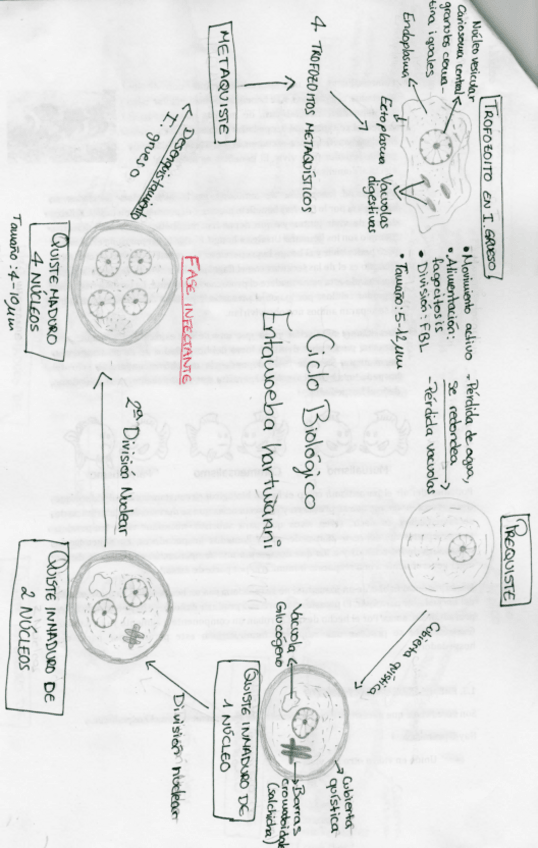 Ciclo Biológico
Entamoeba hartmanni
TROFOZOITO EN I. GRUESO
Núcleo vesicular
Cariosoma central
granulos croma-
tina iguales
Endoplasma
Ectoplasma
Vacuolas
digestivas
• Movimiento activo
• Alimentación:
fagocitosis
• División: FBL
• Tamaño: 5-12 µm
- Pérdida de agua,
se redondea
- Pérdida vacuolas
PREQUISTE
Cubierta quística
QUISTE INNADURO DE
1 NÚCLEO
Vacuola
Glucógeno
Cubierta
quística
Barras
cromatoidales
(salchicha)
División nuclear
QUISTE INNADURO DE
2 NÚCLEOS
2ª División Nuclear
QUISTE MADURO
4 NÚCLEOS
Tamaño: 4-10 µm
FASE INFECTANTE
Desenquistamiento
I. grueso
METAQUISTE
4 TROFOZOITOS METAQUÍSTICOS